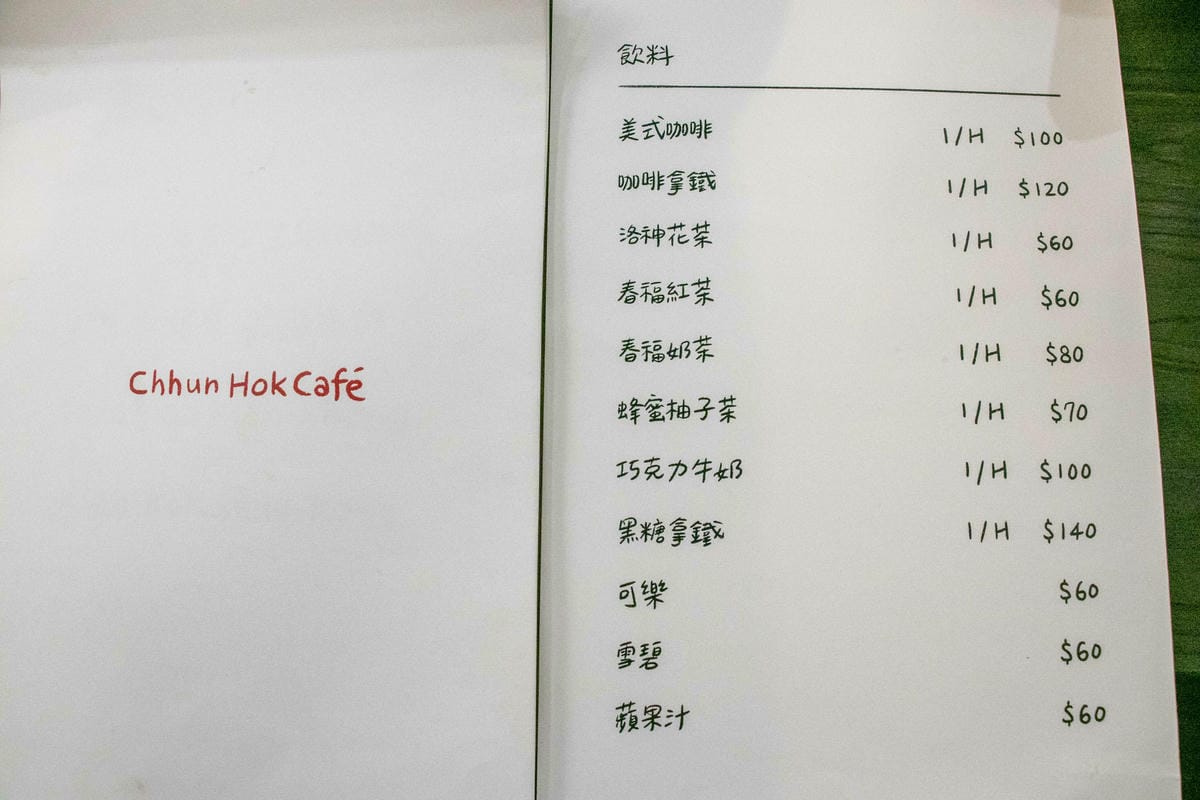 Chhun Hok Café
飲料
美式咖啡 I/H $100
咖啡拿鐵 I/H $120
洛神花茶 I/H $60
春福紅茶 I/H $60
春福奶茶 I/H $80
蜂蜜柚子茶 I/H $70
巧克力牛奶 I/H $100
黑糖拿鐵 I/H $140
可樂 $60
雪碧 $60
蘋果汁 $60